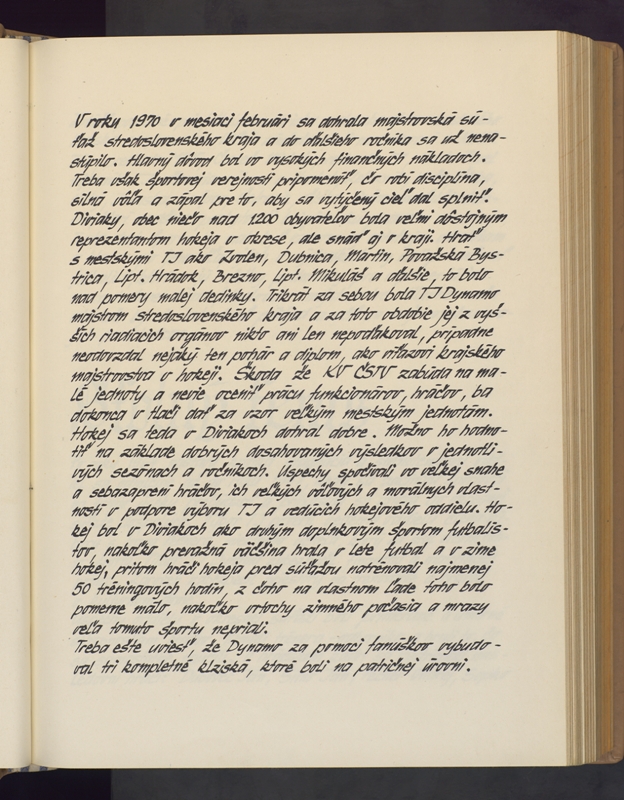 V roku 1970 v mesiaci februári sa dohrala majstrovská sú-
ťaž stredoslovenského kraja a do ďalšieho ročníka sa už nena-
stúpilo. Hlavný dôvod bol vo vysokých finančných nákladoch.
Treba však športovej verejnosti pripomenúť, čo robí disciplína,
silná vôľa a zápal pre to, aby sa vytýčený cieľ dal splniť.
Diviaky, obec niečo nad 1200 obyvateľov bola veľmi dôstojným
reprezentantom hokeja v okrese, ale snáď aj v kraji. Hrať
s mestskými TJ ako Zvolen, Dubnica, Martin, Považská Bys-
trica, Lipt. Hrádok, Brezno, Lipt. Mikuláš a ďalšie, to bolo
nad pomery malej dedinky. Trikrát za sebou bola TJ Dynamo
majstrom stredoslovenského kraja a za toto obdobie jej z vyš-
ších riadiacich orgánov nikto ani len nepoďakoval, prípadne
neodovzdal nejaký ten pohár a diplom, ako víťazovi krajského
majstrovstva v hokeji. Škoda že KV ČSTV zabúda na ma-
lé jednoty a nevie oceniť prácu funkcionárov, hráčov, ba
dokonca v tlači dať za vzor veľkým mestským jednotám.
Hokej sa teda v Diviakoch dohral dobre. Možno ho hodno-
tiť na základe dobrých dosahovaných výsledkov v jednotli-
vých sezónach a ročníkoch. Úspechy spočívali vo veľkej snahe
a sebazaprení hráčov, ich veľkých vôľových a morálnych vlast-
ností v podpore výboru TJ a vedúcich hokejového oddielu. Ho-
kej bol v Diviakoch ako druhým doplnkovým športom futbalis-
tov, nakoľko prevažná väčšina hrala v lete futbal a v zime
hokej, pritom hráči hokeja pred súťažou natrénovali najmenej
50 tréningových hodín, z čoho na vlastnom ľade toho bolo
pomerne málo, nakoľko vrtochy zimného počasia a mrazy
veľa tomuto športu nepriali.
Treba ešte uviesť, že Dynamo za pomoci fanúškov vybudo-
val tri kompletné klziská, ktoré boli na patričnej úrovni.